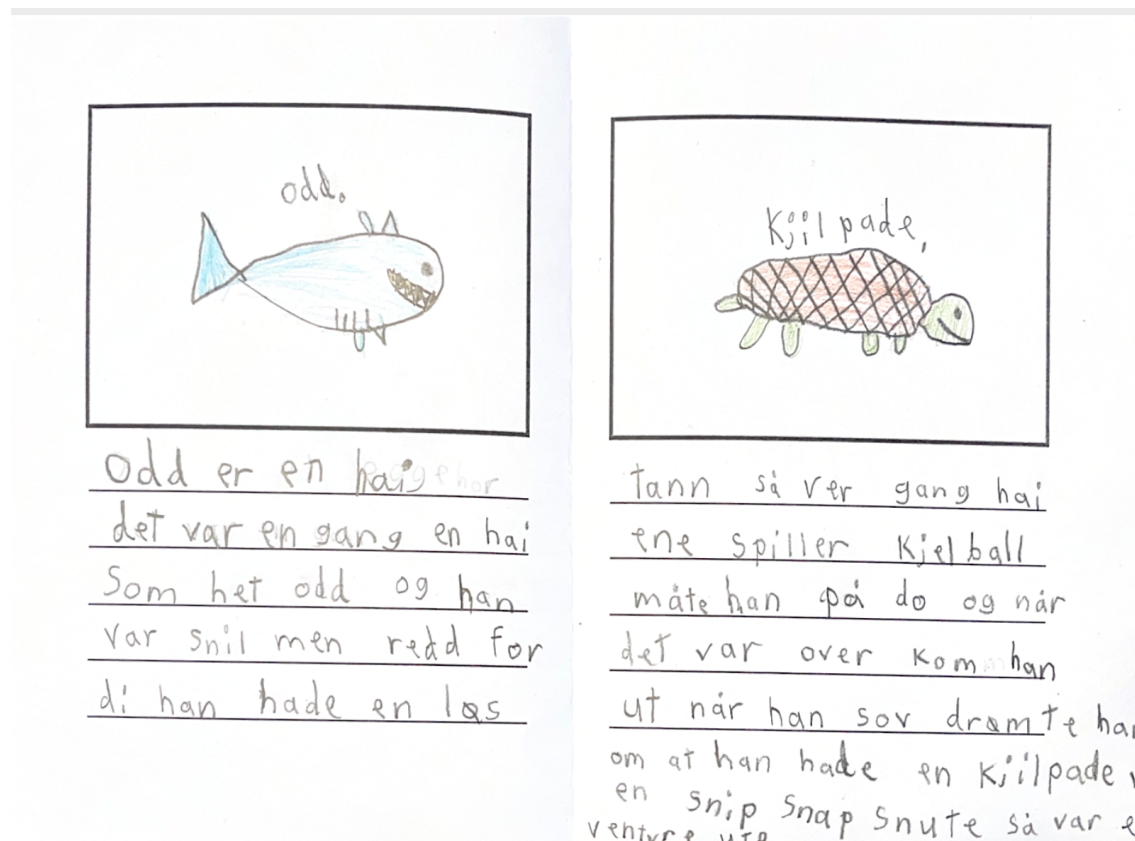 odd.
Odd er en hai
det var en gang en hai
Som het odd og han
var snil men redd for
di han hade en løs
Kjilpade,
tann så ver gang hai
ene spiller kjelball
måte han på do og når
det var over kom han
ut når han sov drømte
om at han hade en kjilpade
en snip snap snute så var